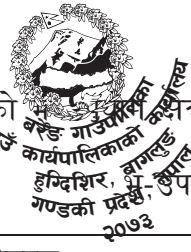 बरेङ गाउँपालिका
गाउँ कार्यपालिकाको कार्यालय
हुग्दिशिर, बागलुङ
गण्डकी प्रदेश, नेपाल
२०७३